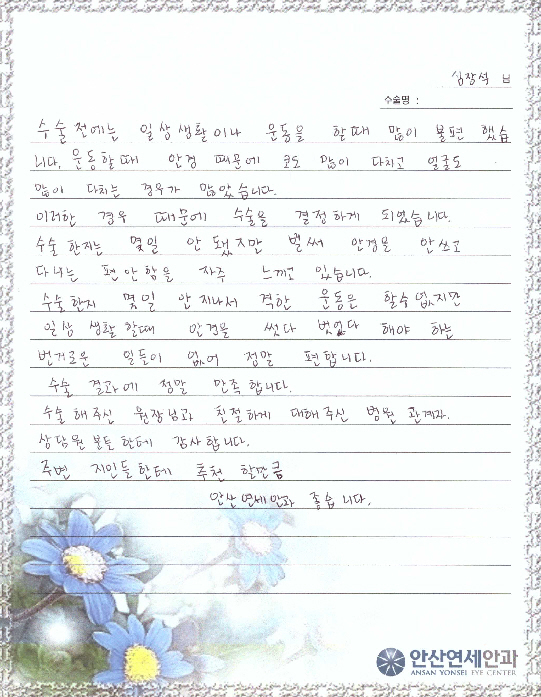 심장석 님
수술명 :
수술 전에는 일상생활이나 운동을 할때 많이 불편 했습
니다. 운동할 때 안경 때문에 코도 많이 다치고 얼굴도
많이 다치는 경우가 많았습니다.
이러한 경우 때문에 수술을 결정하게 되었습니다.
수술 한지는 몇일 안 됐지만 벌써 안경을 안쓰고
다니는 편안함을 자주 느끼고 있습니다.
수술한지 몇일 안지나서 격한 운동은 할수 없지만
일상 생활 할때 안경을 썼다 벗었다 해야 하는
번거로운 일들이 없어 정말 편합니다.
수술 결과에 정말 만족 합니다.
수술 해주신 원장님과 친절하게 대해주신 병원 관계자.
상담원 분들 한테 감사 합니다.
주변 지인들한테 추천 할만큼
안산연세안과 좋습니다.
안산연세안과
ANSAN YONSEI EYE CENTER